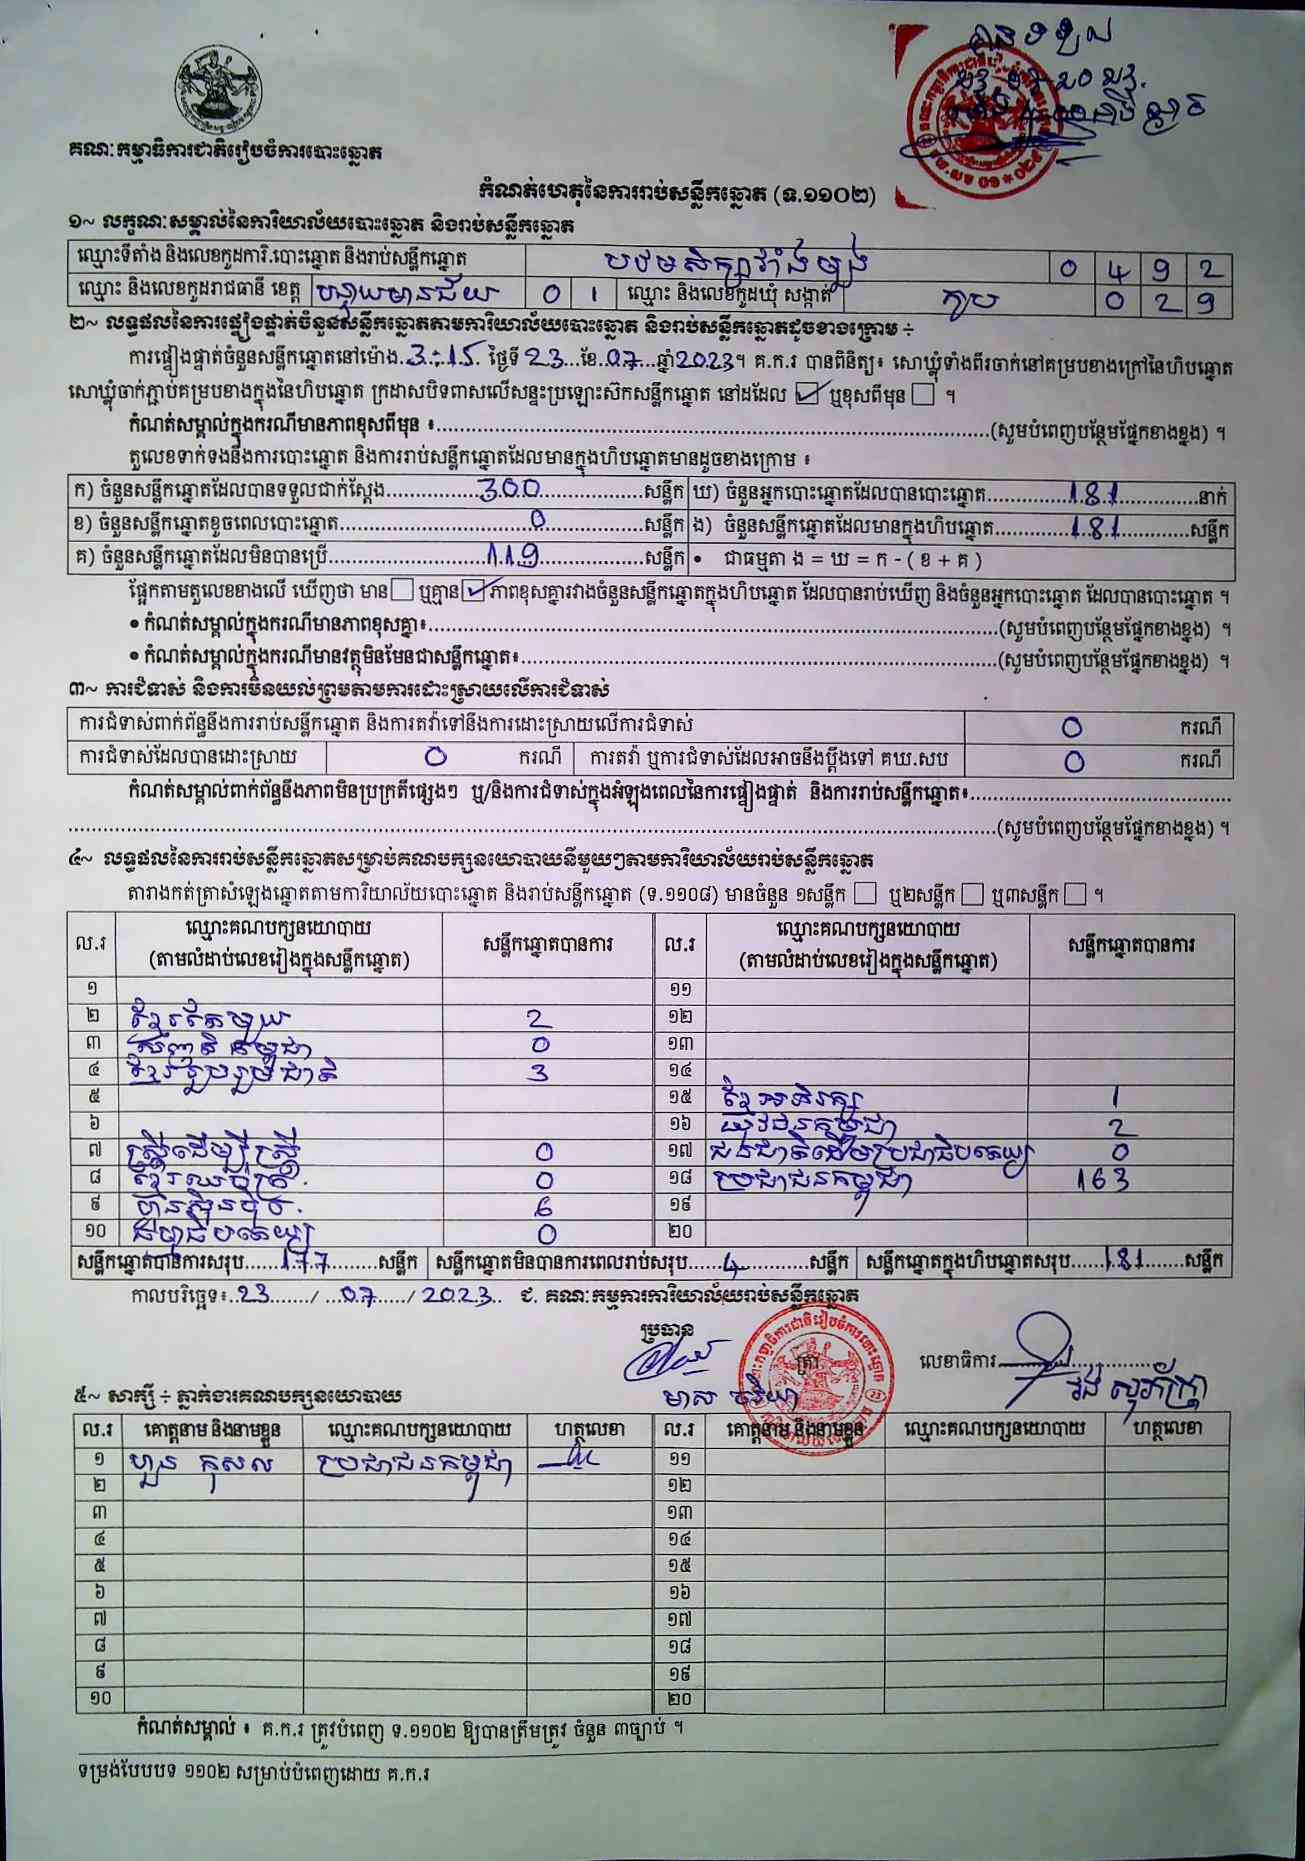 គណៈកម្មាធិការជាតិរៀបចំការបោះឆ្នោត
កំណត់ហេតុនៃការរាប់សន្លឹកឆ្នោត (ទ.១១០២)
១~ លក្ខណៈសម្គាល់នៃការិយាល័យបោះឆ្នោត និងរាប់សន្លឹកឆ្នោត
ឈ្មោះទីតាំង និងលេខកូដការិ.បោះឆ្នោត និងរាប់សន្លឹកឆ្នោត បឋមសិក្សា 0 4 9 2
ឈ្មោះ និងលេខកូដរាជធានី ខេត្ត បន្ទាយមានជ័យ 0 1 ឈ្មោះ និងលេខកូដឃុំ សង្កាត់ កូប 0 2 9
២~ លទ្ធផលនៃការផ្ទៀងផ្ទាត់ចំនួនសន្លឹកឆ្នោតតាមការិយាល័យបោះឆ្នោត និងរាប់សន្លឹកឆ្នោតដូចខាងក្រោម ÷
ការផ្ទៀងផ្ទាត់ចំនួនសន្លឹកឆ្នោតនៅម៉ោង.3:15. ថ្ងៃទី 23...ខែ.07......ឆ្នាំ2023។ គ.ក.រ បានពិនិត្យ៖ សោឃ្លុំទាំងពីរចាក់នៅគម្របខាងក្រៅនៃហិបឆ្នោត
សោឃ្លុំចាក់ភ្ជាប់គម្របខាងក្នុងនៃហិបឆ្នោត ក្រដាសបិទពាសលើសន្ទះប្រឡោះស៊កសន្លឹកឆ្នោត នៅដដែល ☑ ឬខុសពីមុន ☐ ។
កំណត់សម្គាល់ក្នុងករណីមានភាពខុសពីមុន ៖....................(សូមបំពេញបន្ថែមផ្នែកខាងខ្នង) ។
តួលេខទាក់ទងនឹងការបោះឆ្នោត និងការរាប់សន្លឹកឆ្នោតដែលមានក្នុងហិបឆ្នោតមានដូចខាងក្រោម ៖
ក) ចំនួនសន្លឹកឆ្នោតដែលបានទទួលជាក់ស្តែង..........300..........សន្លឹក ឃ) ចំនួនអ្នកបោះឆ្នោតដែលបានបោះឆ្នោត..........181..........នាក់
ខ) ចំនួនសន្លឹកឆ្នោតខូចពេលបោះឆ្នោត..........0..........សន្លឹក ង) ចំនួនសន្លឹកឆ្នោតដែលមានក្នុងហិបឆ្នោត..........181..........សន្លឹក
គ) ចំនួនសន្លឹកឆ្នោតដែលមិនបានប្រើ..........119..........សន្លឹក • ជាធម្មតា ង = ឃ = ក - ( ខ + គ )
ផ្អែកតាមតួលេខខាងលើ ឃើញថា មាន ☐ ឬគ្មាន ☑ ភាពខុសគ្នារវាងចំនួនសន្លឹកឆ្នោតក្នុងហិបឆ្នោត ដែលបានរាប់ឃើញ និងចំនួនអ្នកបោះឆ្នោត ដែលបានបោះឆ្នោត ។
• កំណត់សម្គាល់ក្នុងករណីមានភាពខុសគ្នា៖....................(សូមបំពេញបន្ថែមផ្នែកខាងខ្នង) ។
• កំណត់សម្គាល់ក្នុងករណីមានវត្ថុមិនមែនជាសន្លឹកឆ្នោត៖....................(សូមបំពេញបន្ថែមផ្នែកខាងខ្នង) ។
៣~ ការជំទាស់ និងការមិនយល់ព្រមតាមការដោះស្រាយលើការជំទាស់
ការជំទាស់ពាក់ព័ន្ធនឹងការរាប់សន្លឹកឆ្នោត និងការតវ៉ាទៅនឹងការដោះស្រាយលើការជំទាស់ 0 ករណី
ការជំទាស់ដែលបានដោះស្រាយ 0 ករណី ការតវ៉ា ឬការជំទាស់ដែលអាចនឹងប្តឹងទៅ គឃ.សប 0 ករណី
កំណត់សម្គាល់ពាក់ព័ន្ធនឹងភាពមិនប្រក្រតីផ្សេងៗ ឬ/និងការជំទាស់ក្នុងអំឡុងពេលនៃការផ្ទៀងផ្ទាត់ និងការរាប់សន្លឹកឆ្នោត៖....................
....................(សូមបំពេញបន្ថែមផ្នែកខាងខ្នង) ។
៤~ លទ្ធផលនៃការរាប់សន្លឹកឆ្នោតសម្រាប់គណបក្សនយោបាយនីមួយៗតាមការិយាល័យរាប់សន្លឹកឆ្នោត
តារាងកត់ត្រាសំឡេងឆ្នោតតាមការិយាល័យបោះឆ្នោត និងរាប់សន្លឹកឆ្នោត (ទ.១១០៨) មានចំនួន ១សន្លឹក ☐ ឬ២សន្លឹក ☐ ឬ៣សន្លឹក ☐ ។
ល.រ ឈ្មោះគណបក្សនយោបាយ (តាមលំដាប់លេខរៀងក្នុងសន្លឹកឆ្នោត) សន្លឹកឆ្នោតបានការ ល.រ ឈ្មោះគណបក្សនយោបាយ (តាមលំដាប់លេខរៀងក្នុងសន្លឹកឆ្នោត) សន្លឹកឆ្នោតបានការ
១ ១១
២ ខ្មែរតែមួយ 2 ១២
៣ 0 ១៣
៤ ខ្មែររួបរួមជាតិ 3 ១៤
៥ ១៥ ខ្មែរអភិរក្ស 1
៦ ១៦ យុវជនកម្ពុជា 2
៧ ស្ត្រីដើម្បីស្ត្រី 0 ១៧ ជនជាតិដើមប្រជាធិបតេយ្យ 0
៨ 0 ១៨ ប្រជាជនកម្ពុជា 163
៩ ហ៊្វុនស៊ិនប៉ិច. 6 ១៩
១០ 0 ២០
សន្លឹកឆ្នោតបានការសរុប......177.........សន្លឹក សន្លឹកឆ្នោតមិនបានការពេលរាប់សរុប......4............សន្លឹក សន្លឹកឆ្នោតក្នុងហិបឆ្នោតសរុប......181........សន្លឹក
កាលបរិច្ឆេទ៖..23......./ ...07...../ 2023.. ជ. គណៈកម្មការការិយាល័យរាប់សន្លឹកឆ្នោត
ប្រធាន
ត្រា
លេខាធិការ....................
មាស
៥~ សាក្សី ÷ ភ្នាក់ងារគណបក្សនយោបាយ
ល.រ គោត្តនាម និងនាមខ្លួន ឈ្មោះគណបក្សនយោបាយ ហត្ថលេខា ល.រ គោត្តនាម និងនាមខ្លួន ឈ្មោះគណបក្សនយោបាយ ហត្ថលេខា
១ ហួន កុសល ប្រជាជនកម្ពុជា ១១
២ ១២
៣ ១៣
៤ ១៤
៥ ១៥
៦ ១៦
៧ ១៧
៨ ១៨
៩ ១៩
១០ ២០
កំណត់សម្គាល់ ៖ គ.ក.រ ត្រូវបំពេញ ទ.១១០២ ឱ្យបានត្រឹមត្រូវ ចំនួន ៣ច្បាប់ ។
ទម្រង់បែបបទ ១១០២ សម្រាប់បំពេញដោយ គ.ក.រ